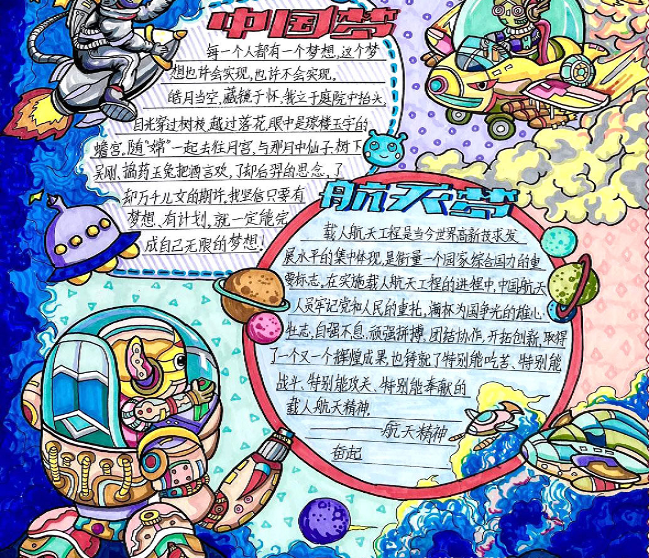 中国梦
每一个人都有一个梦想，这个梦
想也许会实现，也许不会实现。
皓月当空，藏镜于怀，我立于庭院中抬头，
目光穿过树枝，越过落花，眼中是琼楼玉宇的
蟾宫。随"嫦"一起去往月宫，与那月中仙子，树下
吴刚、捣药玉兔把酒言欢，了却后羿的思念，了
却万千儿女的期许，我坚信只要有
梦想、有计划，就一定能完
成自己无限的梦想！
航天梦
载人航天工程是当今世界高新技术发
展水平的集中体现，是衡量一个国家综合国力的重
要标志，在实施载人航天工程的进程中，中国航天
人员牢记党和人民的重托，满怀为国争光的雄心
壮志，自强不息，顽强拼搏，团结协作，开拓创新，取得
了一个又一个辉煌成果，也铸就了特别能吃苦、特别能
战斗、特别能攻关、特别能奉献的
载人航天精神。
——航天精神
奋起